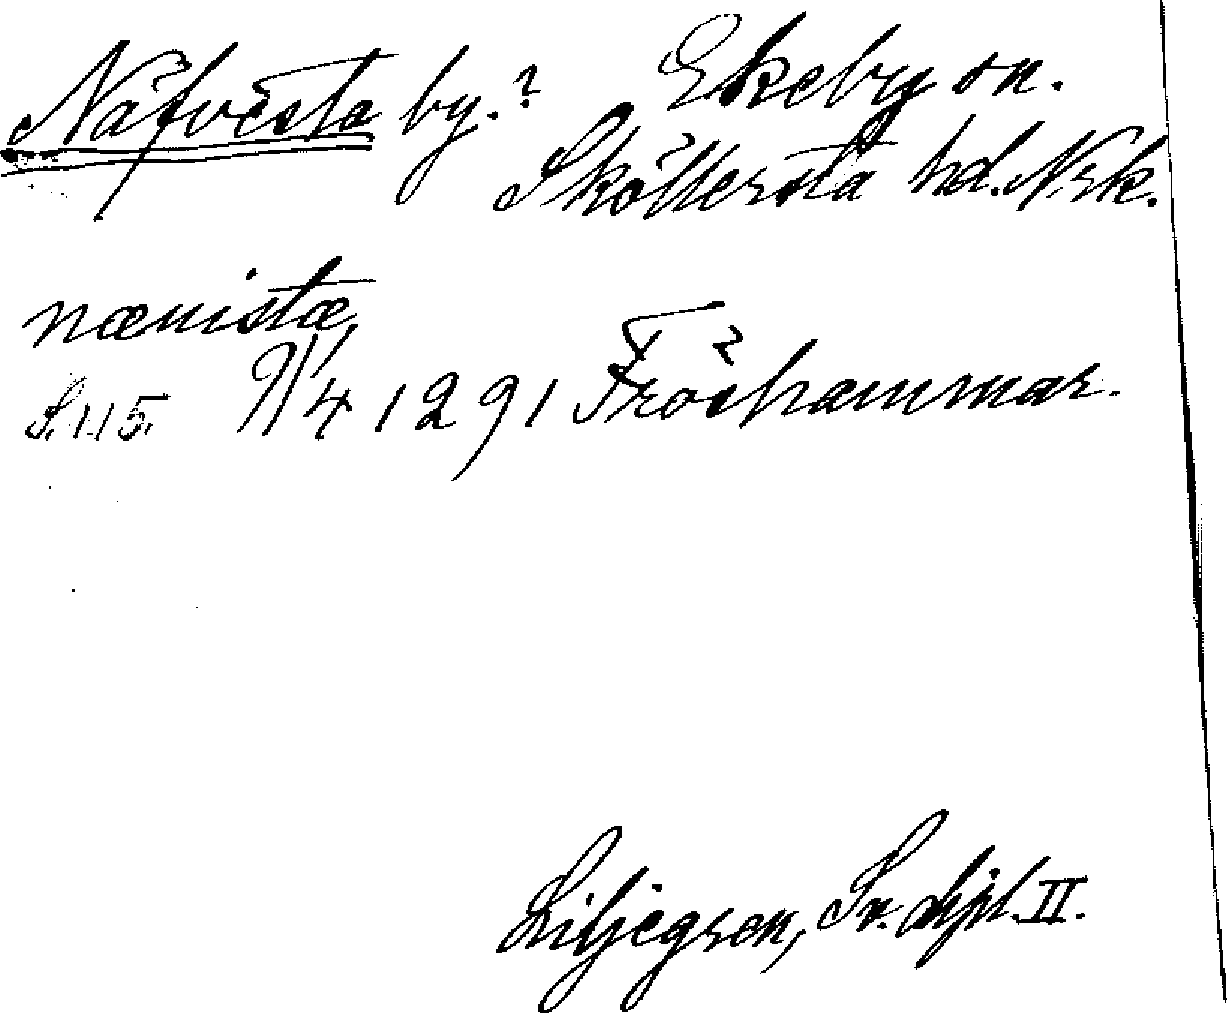 Näfvesta by.? Ekeby sn.
Sköllersta hd. Nrk.
næuistæ,
S. 115. 9/4 1291 Fröshammar.
Liljegren, Sv. dipl. II.